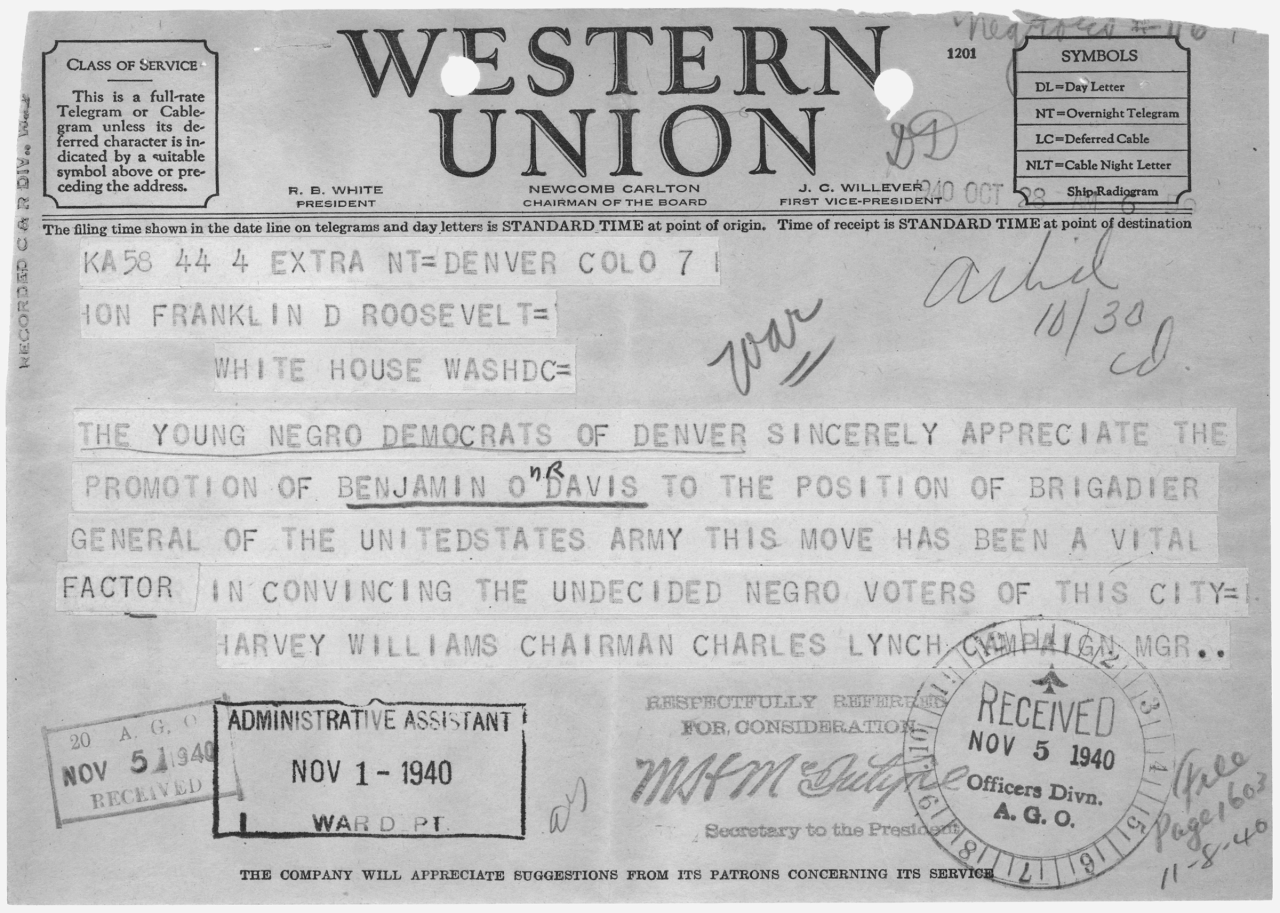 WESTERN
UNION
1201
CLASS OF SERVICE
This is a full-rate
Telegram or Cable-
gram unless its de-
ferred character is in-
dicated by a suitable
symbol above or pre-
ceding the address.
SYMBOLS
DL=Day Letter
NT=Overnight Telegram
LC=Deferred Cable
NLT=Cable Night Letter
Ship Radiogram
DD
R. B. WHITE
PRESIDENT
NEWCOMB CARLTON
CHAIRMAN OF THE BOARD
J. C. WILLEVER
FIRST VICE-PRESIDENT
1940 OCT 28 AM 6
The filing time shown in the date line on telegrams and day letters is STANDARD TIME at point of origin. Time of receipt is STANDARD TIME at point of destination
RECORDED C & R DIV..
KA58 44 4 EXTRA NT=DENVER COLO 7
HON FRANKLIN D ROOSEVELT=
WHITE HOUSE WASHDC=
war
10/30
cd.
THE YOUNG NEGRO DEMOCRATS OF DENVER SINCERELY APPRECIATE THE
PROMOTION OF BENJAMIN O DAVIS TO THE POSITION OF BRIGADIER
GENERAL OF THE UNITEDSTATES ARMY THIS MOVE HAS BEEN A VITAL
FACTOR IN CONVINCING THE UNDECIDED NEGRO VOTERS OF THIS CITY=
HARVEY WILLIAMS CHAIRMAN CHARLES LYNCH CAMPAIGN MGR..
20 A. G. O
NOV 5 1940
RECEIVED
ADMINISTRATIVE ASSISTANT
NOV 1 - 1940
WAR D PT.
RESPECTFULLY REFERRED
FOR CONSIDERATION
M H McIntyre
Secretary to the President
RECEIVED
NOV 5 1940
Officers Divn.
A. G. O.
1 2 3 4 5 6 7 8 9 10 11 12
file
page 1603
11-8-40
THE COMPANY WILL APPRECIATE SUGGESTIONS FROM ITS PATRONS CONCERNING ITS SERVICE